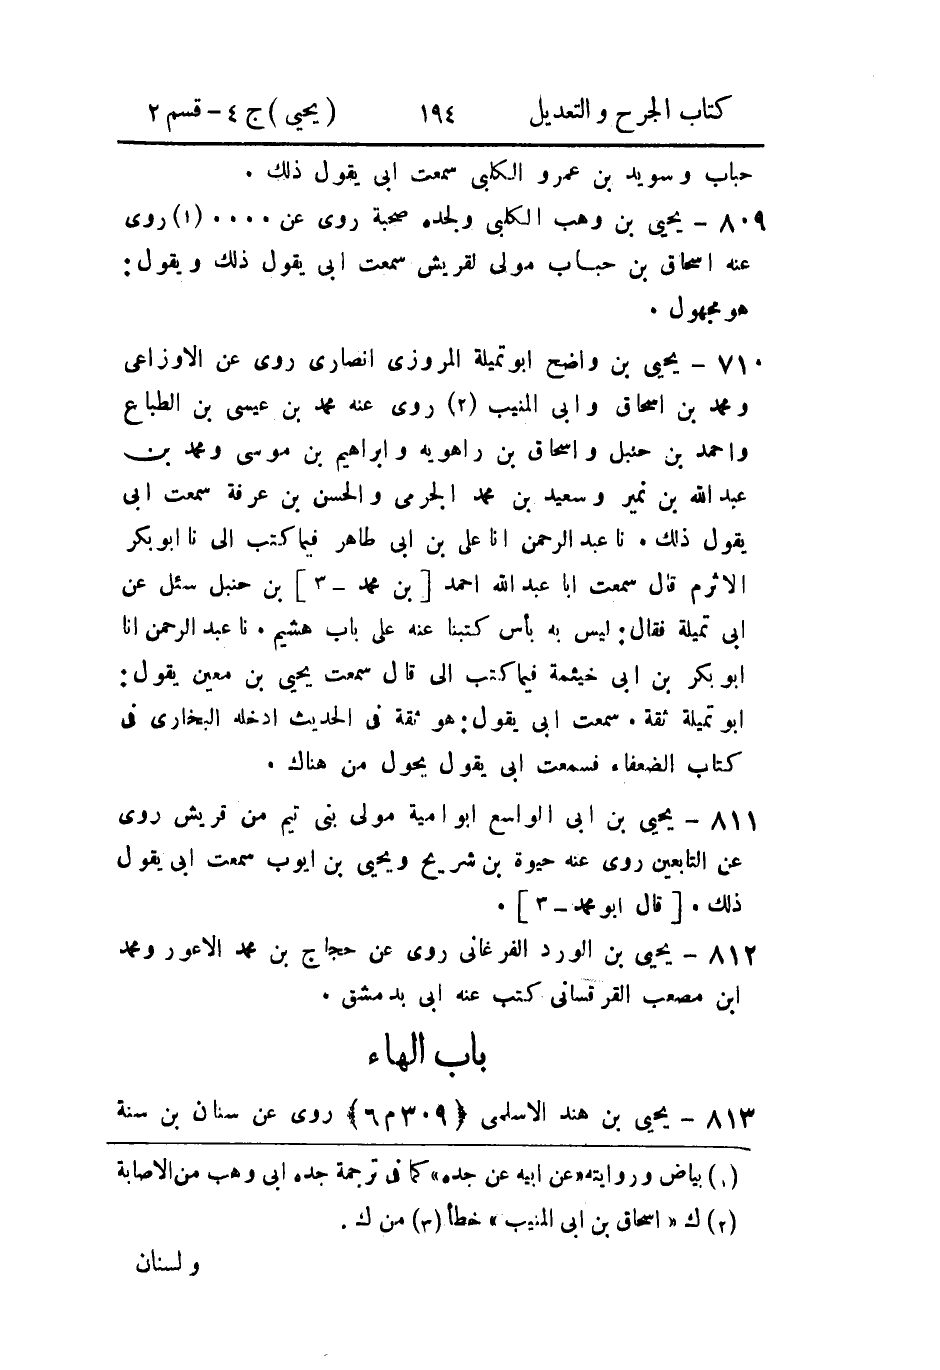 كتاب الجرح والتعديل ١٩٤ (يحيى) ج ٤ - قسم ٢
حباب وسويد بن عمرو الكلبى سمعت ابى يقول ذلك .
٨٠٩ - يحيى بن وهب الكلبى ولجده صحبة روى عن .... (١) روى
عنه اسحاق بن حباب مولى لقريش سمعت ابى يقول ذلك ويقول:
هو مجهول .
٧١٠ - يحيى بن واضح ابو تميلة المروزى انصارى روى عن الاوزاعى
ومحمد بن اسحاق وابى المنيب (٢) روى عنه محمد بن عيسى بن الطباع
واحمد بن حنبل واسحاق بن راهويه وابراهيم بن موسى ومحمد بن
عبد الله بن نمير وسعيد بن محمد الجرمى والحسن بن عرفة سمعت ابى
يقول ذلك . نا عبد الرحمن انا على بن ابى طاهر فيما كتب الى نا ابو بكر
الاثرم قال سمعت ابا عبد الله احمد [بن محمد - ٣] بن حنبل سئل عن
ابى تميلة فقال: ليس به بأس كتبنا عنه على باب هشيم . نا عبد الرحمن انا
ابو بكر بن ابى خيثمة فيما كتب الى قال سمعت يحيى بن معين يقول:
ابو تميلة ثقة . سمعت ابى يقول: هو ثقة فى الحديث ادخله البخارى فى
كتاب الضعفاء فسمعت ابى يقول يحول من هناك .
٨١١ - يحيى بن ابى الواسع ابو امية مولى بنى تيم من قريش روى
عن التابعين روى عنه حيوة بن شريح ويحيى بن ايوب سمعت ابى يقول
ذلك . [قال ابو محمد - ٣] .
٨١٢ - يحيى بن الورد الفرغانى روى عن حجاج بن محمد الاعور ومحمد
ابن مصعب القرقسانى كتب عنه ابى بدمشق .
باب الهاء
٨١٣ - يحيى بن هند الاسلمى ﴿٣٠٩ م٦﴾ روى عن سنان بن سنة
(١) بياض وروايته «عن ابيه عن جده» كما فى ترجمة جده ابى وهب من الاصابة
(٢) ك «اسحاق بن ابى المنيب» خطأ (٣) من ك .
ولسنان